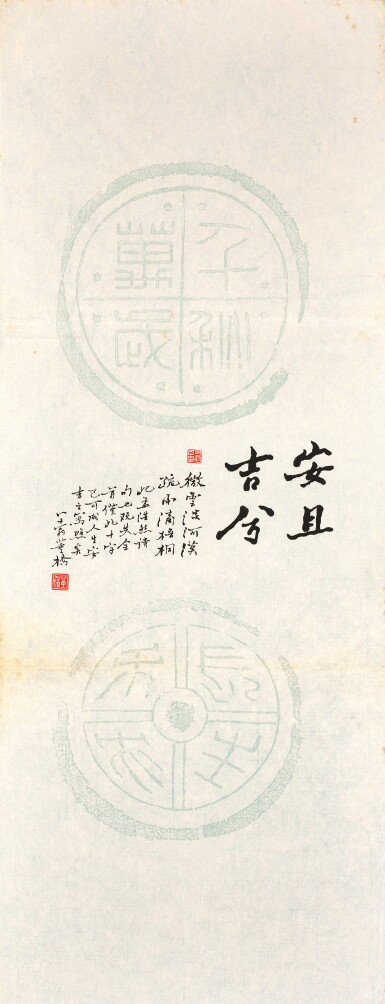 千秋
萬歲
安且
吉兮
微雲淡河漢
疏雨滴梧桐
此孟浩然詩
句也現失全
首僅此十字
已可成人生安
吉之寫照矣
董橋
長生
未央